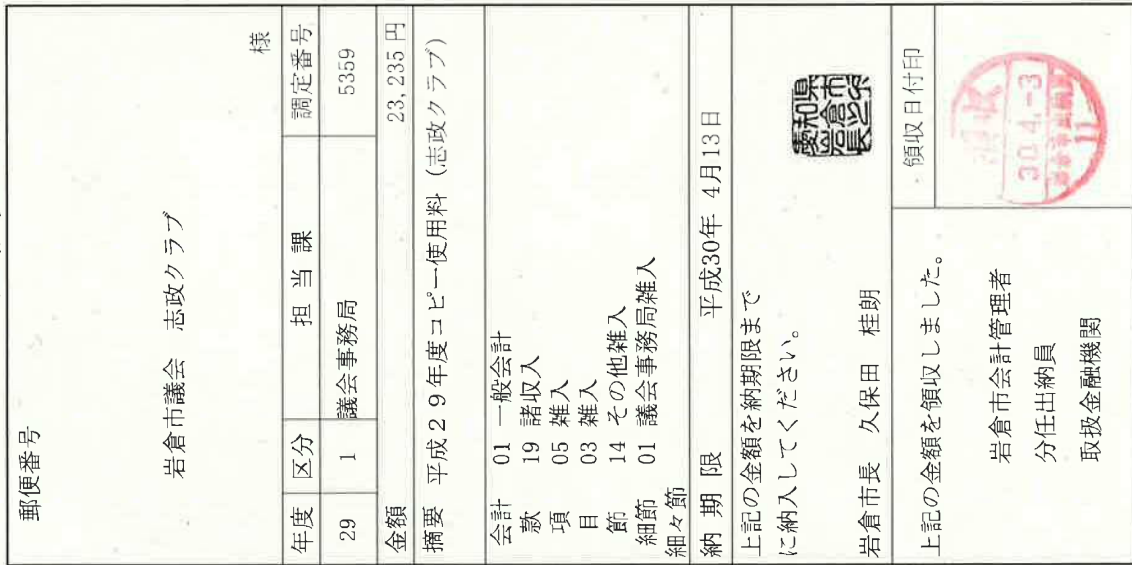 郵便番号
岩倉市議会 志政クラブ
様
年度 区分 担当課 調定番号
29 1 議会事務局 5359
金額 23,235 円
摘要 平成29年度コピー使用料（志政クラブ）
会計 01 一般会計
款 19 諸収入
項 05 雑入
目 03 雑入
節 14 その他雑入
細節 01 議会事務局雑入
細々節
納期限 平成30年 4月13日
上記の金額を納期限まで
に納入してください。
岩倉市長 久保田 桂朗
愛知県
岩倉市
長之印
上記の金額を領収しました。
領収日付印
岩倉市会計管理者
分任出納員
取扱金融機関
30.4.-3
11